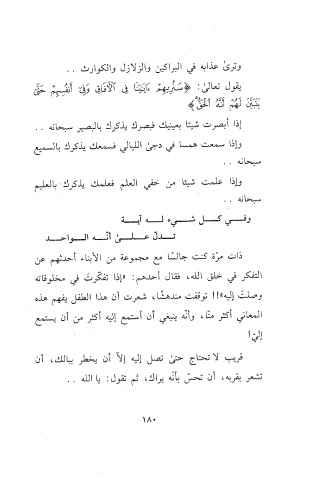 وترىٰ عذابه في البراكين والزلازل والكوارث ..
يقول تعالىٰ: ﴿سَنُرِيهِمْ ءَايَٰتِنَا فِى ٱلْأَفَاقِ وَفِىٓ أَنفُسِهِمْ حَتَّىٰ
يَتَبَيَّنَ لَهُمْ أَنَّهُ ٱلْحَقُّ﴾
إذا أبصرت شيئًا بعينيك فبصرك يذكرك بالبصير سبحانه ..
وإذا سمعت همسا في دجىٰ الليالي فسمعك يذكرك بالسميع
سبحانه ..
وإذا علمت شيئًا من خفي العلم فعلمك يذكرك بالعليم
سبحانه ..
وفي كل شيء له آية
تدل علىٰ أنّه الواحد
ذات مرّة كنت جالسًا مع مجموعة من الأبناء أحدثهم عن
التفكر في خلق الله، فقال أحدهم: «إذا تفكرتَ في مخلوقاته
وصلتَ إليه»!! توقفت مندهشًا، شعرت أن هذا الطفل يفهم هذه
المعاني أكثر منّا، وأنّه ينبغي أن أستمع إليه أكثر من أن يستمع
إليّ!
قريب لا تحتاج حتىٰ تصل إليه إلاّ أن يخطر ببالك، أن
تشعر بقربه، أن تحسّ بأنّه يراك، ثم تقول: يا الله ..
١٨٠